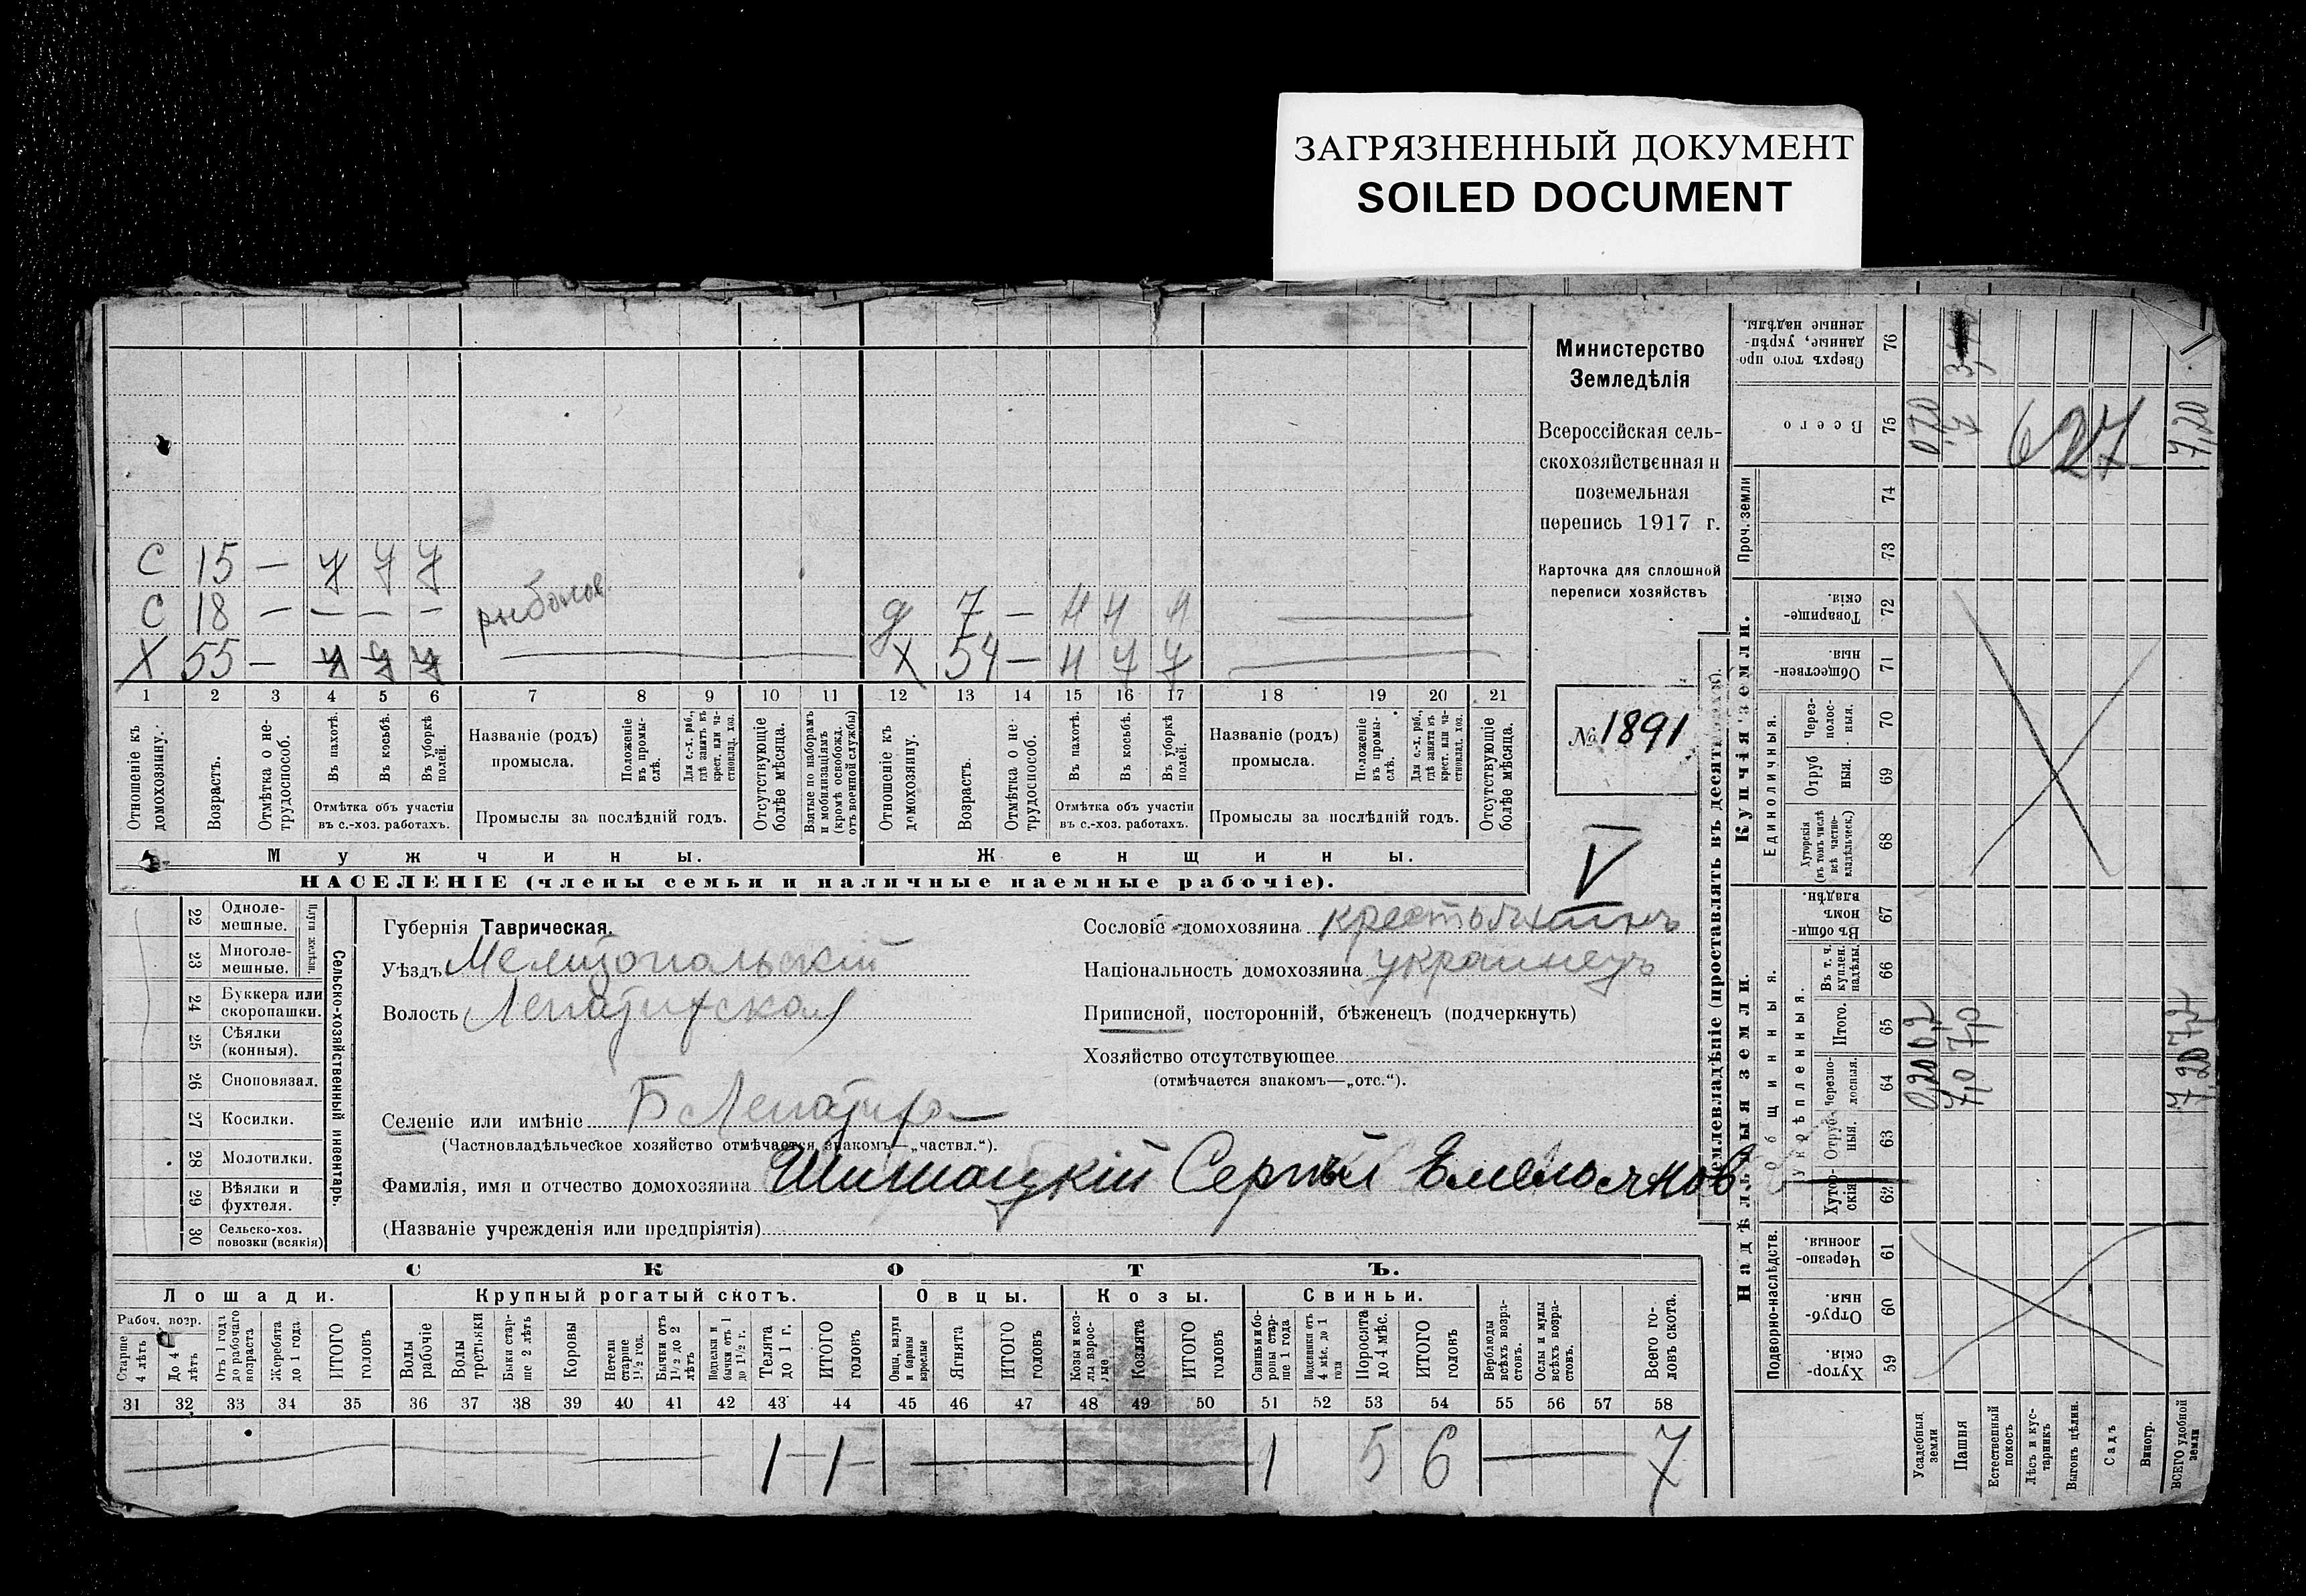 ЗАГРЯЗНЕННЫЙ ДОКУМЕНТ
SOILED DOCUMENT
С 15 — у у у
С 18 — — — — рыболов.
Х 55 — у у у
д 7 — н н н
Х 54 — н у у
1 2 3 4 5 6 7 8 9 10 11 12 13 14 15 16 17 18 19 20 21
Отношеніе къ домохозяину.
Возрастъ.
Отмѣтка о не-трудоспособ.
Въ пахотѣ.
Въ косьбѣ.
Въ уборкѣ полей.
Отмѣтка объ участіи
въ с.-хоз. работахъ.
Названіе (родъ)
промысла.
Положеніе въ промы-слѣ.
Для с.-х. раб., гдѣ занятъ въ крест. или ча-стновлад. хоз.
Промыслы за послѣдній годъ.
Отсутствующіе болѣе мѣсяца.
Взятые по наборамъ и мобилизаціямъ (кромѣ освобожд. отъ военной службы)
Отношеніе къ домохозяину.
Возрастъ.
Отмѣтка о не-трудоспособ.
Въ пахотѣ.
Въ косьбѣ.
Въ уборкѣ полей.
Отмѣтка объ участіи
въ с.-хоз. работахъ.
Названіе (родъ)
промысла.
Положеніе въ промы-слѣ.
Для с.-х. раб., гдѣ занята въ крест. или ча-стновлад. хоз.
Промыслы за послѣдній годъ.
Отсутствующіе болѣе мѣсяца.
Мужчины.
Женщины.
НАСЕЛЕНІЕ (члены семьи и наличные наемные рабочіе).
Министерство
Земледѣлія
Всероссійская сель-
скохозяйственная и
поземельная
перепись 1917 г.
Карточка для сплошной
переписи хозяйствъ
№ 1891
V
22 Одноле-мешные.
23 Многоле-мешные.
24 Буккера или скоропашки.
25 Сѣялки (конныя).
26 Сноповязал.
27 Косилки.
28 Молотилки.
29 Вѣялки и фухтеля.
30 Сельско-хоз. повозки (всякія)
Сельско-хозяйственный инвентарь.
Губернія Таврическая.
Уѣздъ Мелитопольскій
Волость Лепатихская
Селеніе или имѣніе Б Лепатиха
(Частновладѣльческое хозяйство отмѣчается знакомъ—„частвл.“).
Фамилія, имя и отчество домохозяина Шишацкій Сергѣй Емельянов
(Названіе учрежденія или предпріятія)
Сословіе домохозяина крестьянинъ
Національность домохозяина украинецъ
Приписной, посторонній, бѣженецъ (подчеркнуть)
Хозяйство отсутствующее
(отмѣчается знакомъ—„отс.“).
СКОТЪ.
Лошади. Крупный рогатый скотъ. Овцы. Козы. Свиньи.
Рабоч. возр.
Старше 4 лѣтъ
До 4 лѣтъ
Отъ 1 года до рабочаго возраста
Жеребята до 1 года
ИТОГО головъ
Волы рабочіе
Волы третьяки
Быки стар-ше 2 лѣтъ
Коровы
Нетели старше 1½ год.
Бычки отъ 1½ до 2 лѣтъ
Подтелки и бычки отъ 1 до 1½ г.
Телята до 1 г.
ИТОГО головъ
Овцы, валухи и бараны взрослые
Ягнята
ИТОГО головъ
Козы и коз-лы взрос-лые
Козлята
ИТОГО головъ
Свиньи и бо-ровы стар-ше 1 года
Подсвинки отъ 4 мѣс. до 1 года
Поросята до 4 мѣс.
ИТОГО головъ
Верблюды всѣхъ возра-стовъ.
Ослы и мулы всѣхъ возра-стовъ.
Всего го-ловъ скота.
31 32 33 34 35 36 37 38 39 40 41 42 43 44 45 46 47 48 49 50 51 52 53 54 55 56 57 58
1 1 1 5 6 7
Землевладѣніе (проставлять въ
Купчія земли.
Надѣльныя земли.
Сверхъ того про-данные, укрѣп-ленные надѣлы. 76
Всего 75
Проч. земли 74 73
Товарище-скія. 72
Обществен-ныя. 71
Единоличныя.
Через-полос-ныя. 70
Отруб-ныя. 69
Хуторскія (въ томъ числѣ всѣ частно-владѣльческ.) 68
Общинныя.
Въ общи-номъ владѣн. 67
Укрѣпленныя.
Въ т. ч. куплен. надѣлы. 66
Итого. 65
Черезпо-лосныя. 64
Отруб-ныя. 63
Хутор-скія 62
Подворно-наслѣдств.
Черезпо-лосныя. 61
Отруб-ныя. 60
Хутор-скія. 59
Усадебныя земли
Пашня
Естественный покосъ
Лѣсъ и кус-тарникъ
Выгонъ цѣлин.
Садъ
Виногр.
ВСЕГО удобной земли
627
7,20
0,20
7,0
7,20